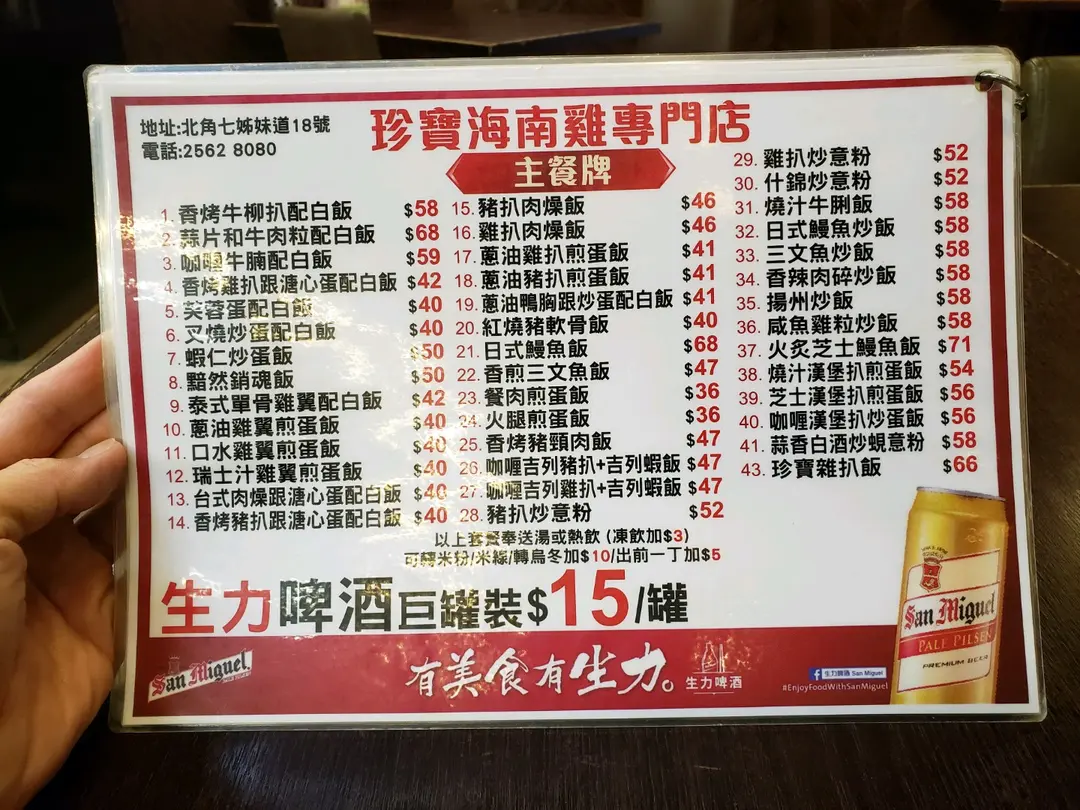 地址:北角七姊妹道18號
電話:2562 8080
珍寶海南雞專門店
主餐牌
1. 香烤牛柳扒配白飯 $58
2. 蒜片和牛肉粒配白飯 $68
3. 咖喱牛腩配白飯 $59
4. 香烤雞扒跟溏心蛋配白飯 $42
5. 芙蓉蛋配白飯 $40
6. 叉燒炒蛋配白飯 $40
7. 蝦仁炒蛋飯 $50
8. 黯然銷魂飯 $50
9. 泰式單骨雞翼配白飯 $42
10. 蔥油雞翼煎蛋飯 $40
11. 口水雞翼煎蛋飯 $40
12. 瑞士汁雞翼煎蛋飯 $40
13. 台式肉燥跟溏心蛋配白飯 $40
14. 香烤豬扒跟溏心蛋配白飯 $40
15. 豬扒肉燥飯 $46
16. 雞扒肉燥飯 $46
17. 蔥油雞扒煎蛋飯 $41
18. 蔥油豬扒煎蛋飯 $41
19. 蔥油鴨胸跟炒蛋配白飯 $41
20. 紅燒豬軟骨飯 $40
21. 日式鰻魚飯 $68
22. 香煎三文魚飯 $47
23. 餐肉煎蛋飯 $36
24. 火腿煎蛋飯 $36
25. 香烤豬頸肉飯 $47
26. 咖喱吉列豬扒+吉列蝦飯 $47
27. 咖喱吉列雞扒+吉列蝦飯 $47
28. 豬扒炒意粉 $52
29. 雞扒炒意粉 $52
30. 什錦炒意粉 $52
31. 燒汁牛脷飯 $58
32. 日式鰻魚炒飯 $58
33. 三文魚炒飯 $58
34. 香辣肉碎炒飯 $58
35. 揚州炒飯 $58
36. 咸魚雞粒炒飯 $58
37. 火炙芝士鰻魚飯 $71
38. 燒汁漢堡扒煎蛋飯 $54
39. 芝士漢堡扒煎蛋飯 $56
40. 咖喱漢堡扒炒蛋飯 $56
41. 蒜香白酒炒蜆意粉 $58
43. 珍寶雜扒飯 $66
以上套餐奉送湯或熱飲 (凍飲加$3)
可轉米粉/米線/轉烏冬加$10/出前一丁加$5
生力啤酒巨罐裝$15/罐
San Miguel
有美食有生力。
生力啤酒
生力啤酒 San Miguel
#EnjoyFoodWithSanMiguel
San Miguel
PALE PILSEN
PREMIUM BEER